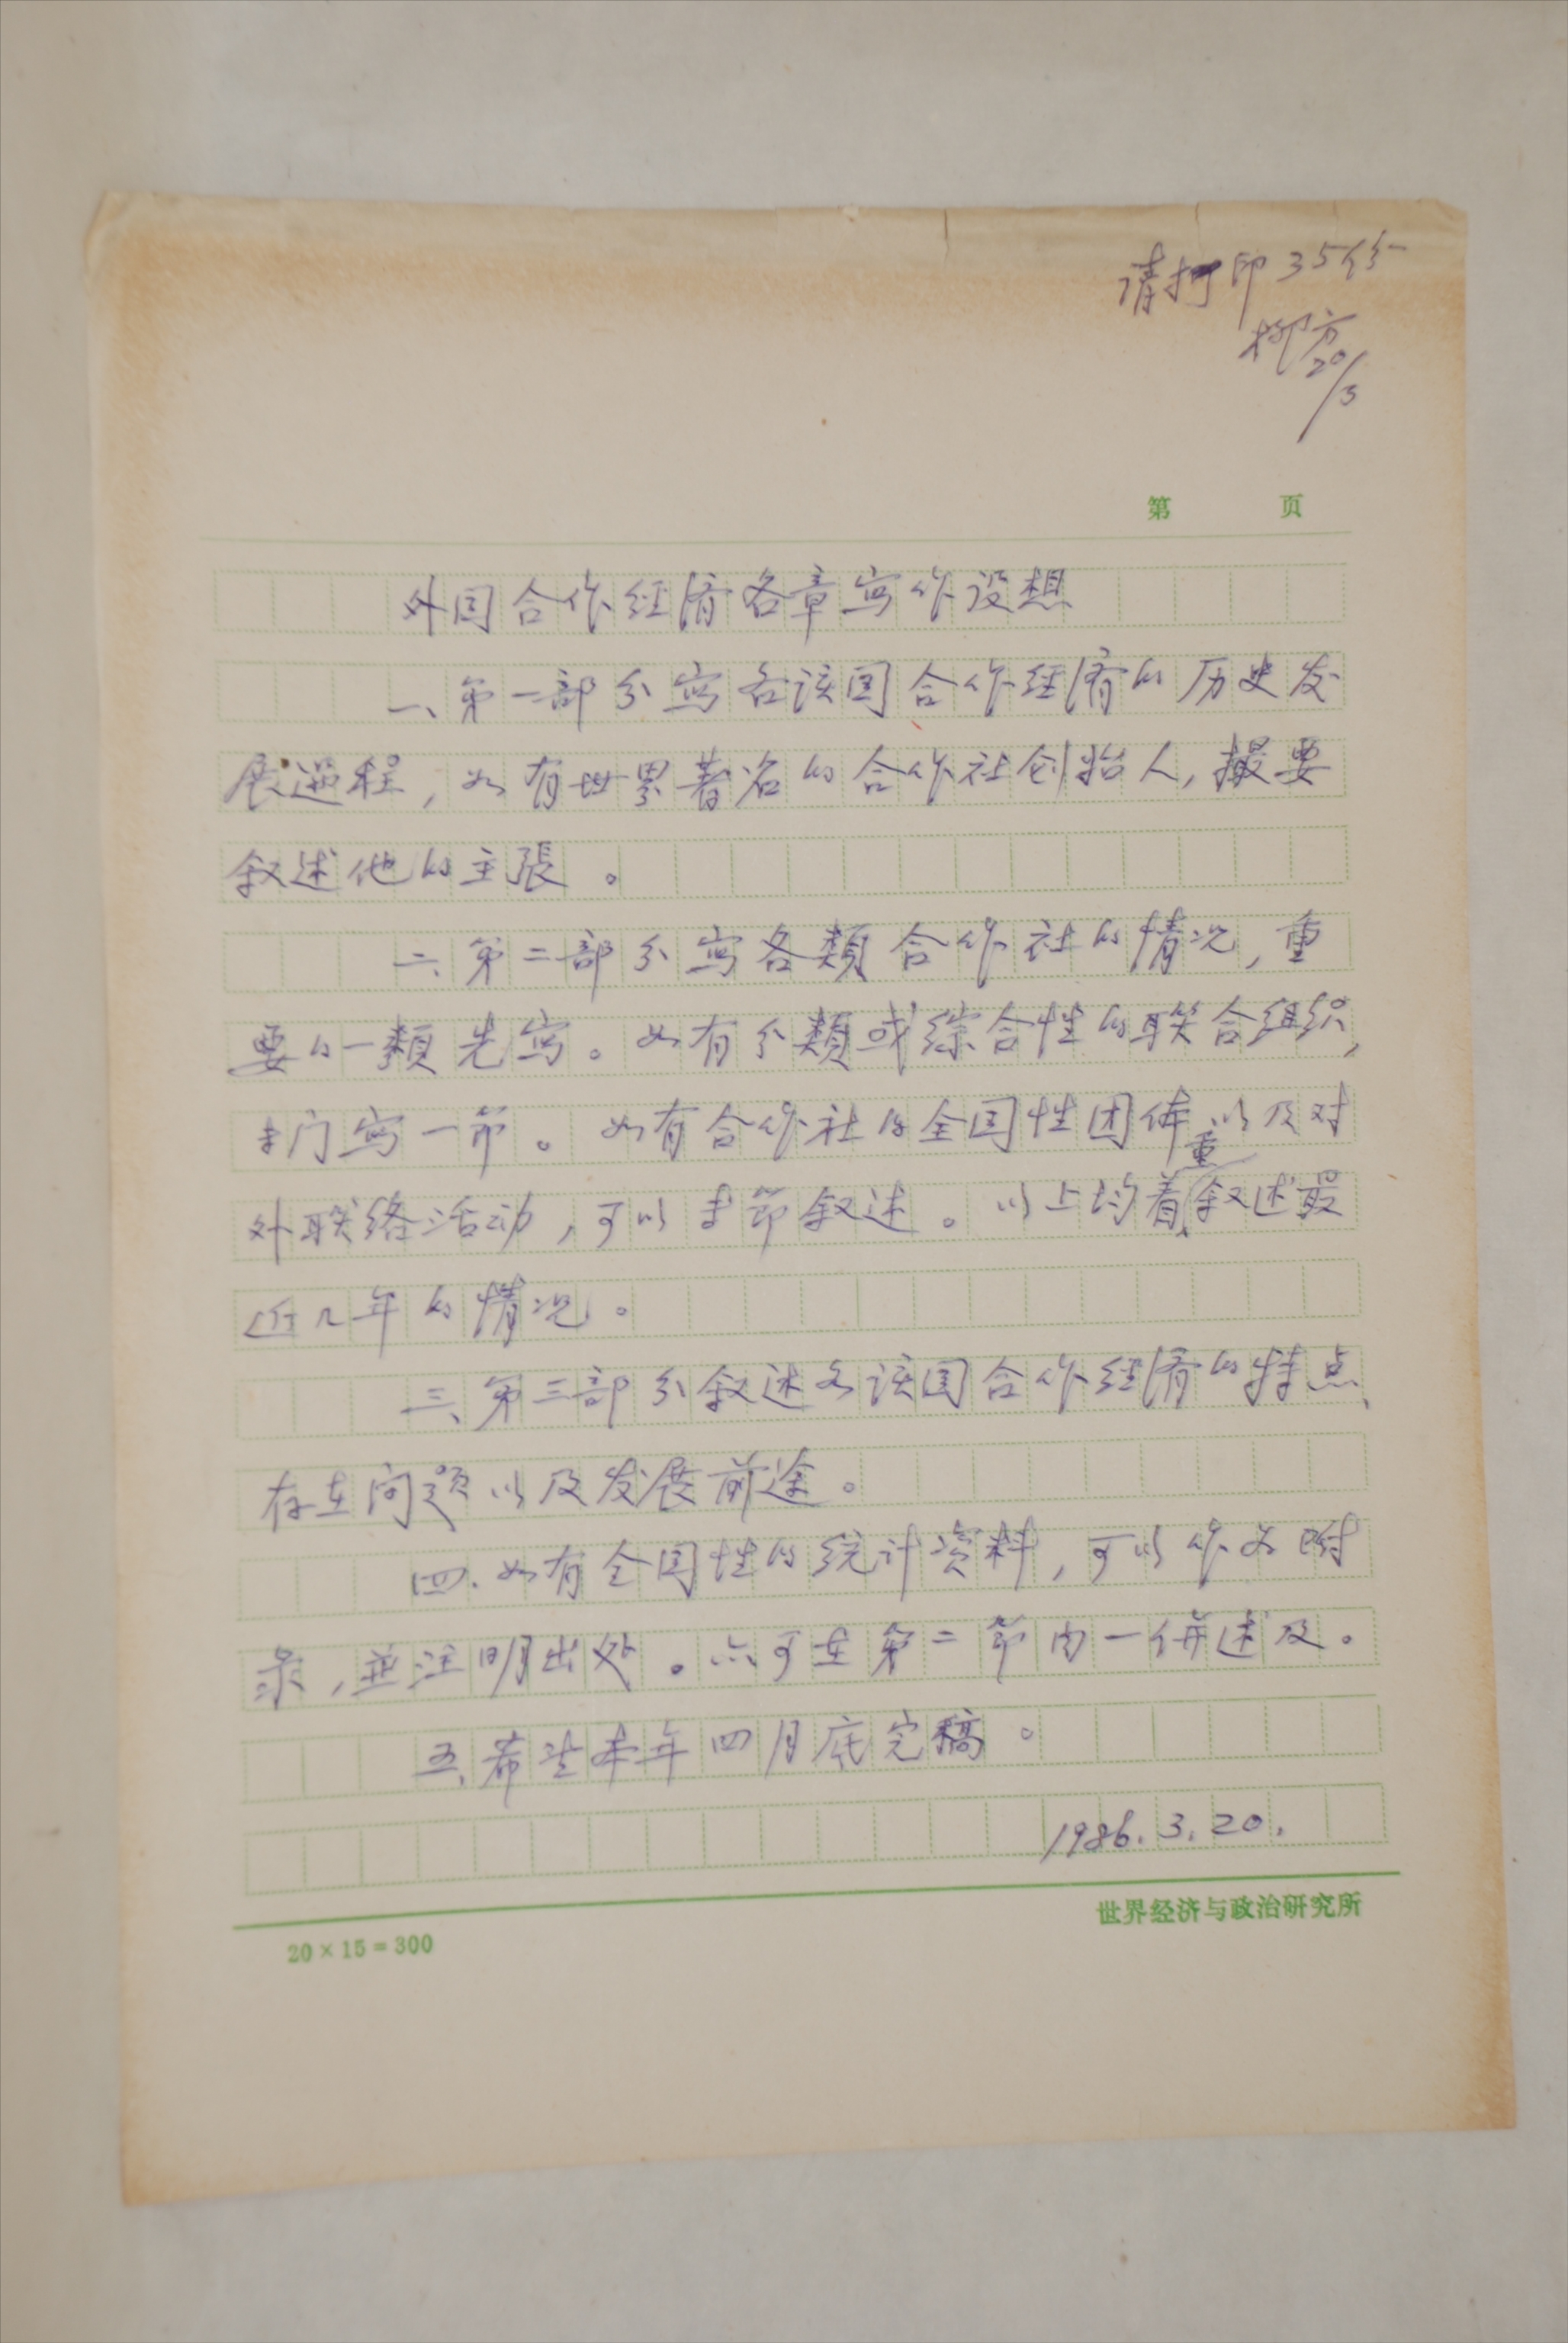 请打印35份
柳方
20/3
第 页
外国合作经济各章写作设想
一、第一部分写各该国合作经济的历史发
展过程,如有世界著名的合作社创始人,撮要
叙述他的主張。
二、第二部分写各類合作社的情况,重
要的一類先写。如有分類或综合性的联合组织,
专门写一节。如有合作社的全国性团体以及对
外联络活动,可以专節叙述。以上均着重叙述最
近几年的情况。
三、第三部分叙述各该国合作经济的特点、
存在问题以及发展前途。
四、如有全国性的统计资料,可以作为附
录,並注明出处。亦可在第二節内一併述及。
五、希望本年四月底完稿。
1986.3.20.
世界经济与政治研究所
20×15=300